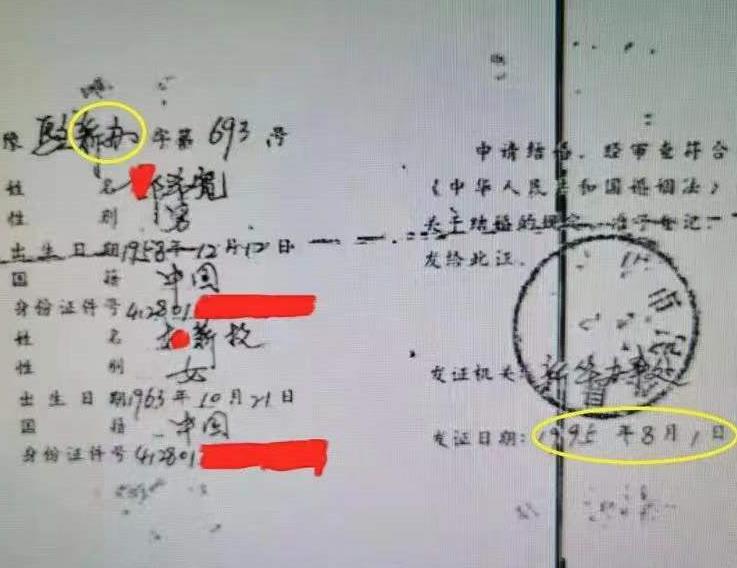 字第 693 号
姓 名
性 别 男
出生日期 1958年12月12日
国 籍 中国
身份证件号 412801
姓 名 新枝
性 别 女
出生日期 1963年10月21日
国 籍 中国
身份证件号 412801
申请结婚,经审查符合
《中华人民共和国婚姻法》
关于结婚的规定,准予登记,
发给此证。
发证机关: 新华办事处
发证日期: 1995年8月1日